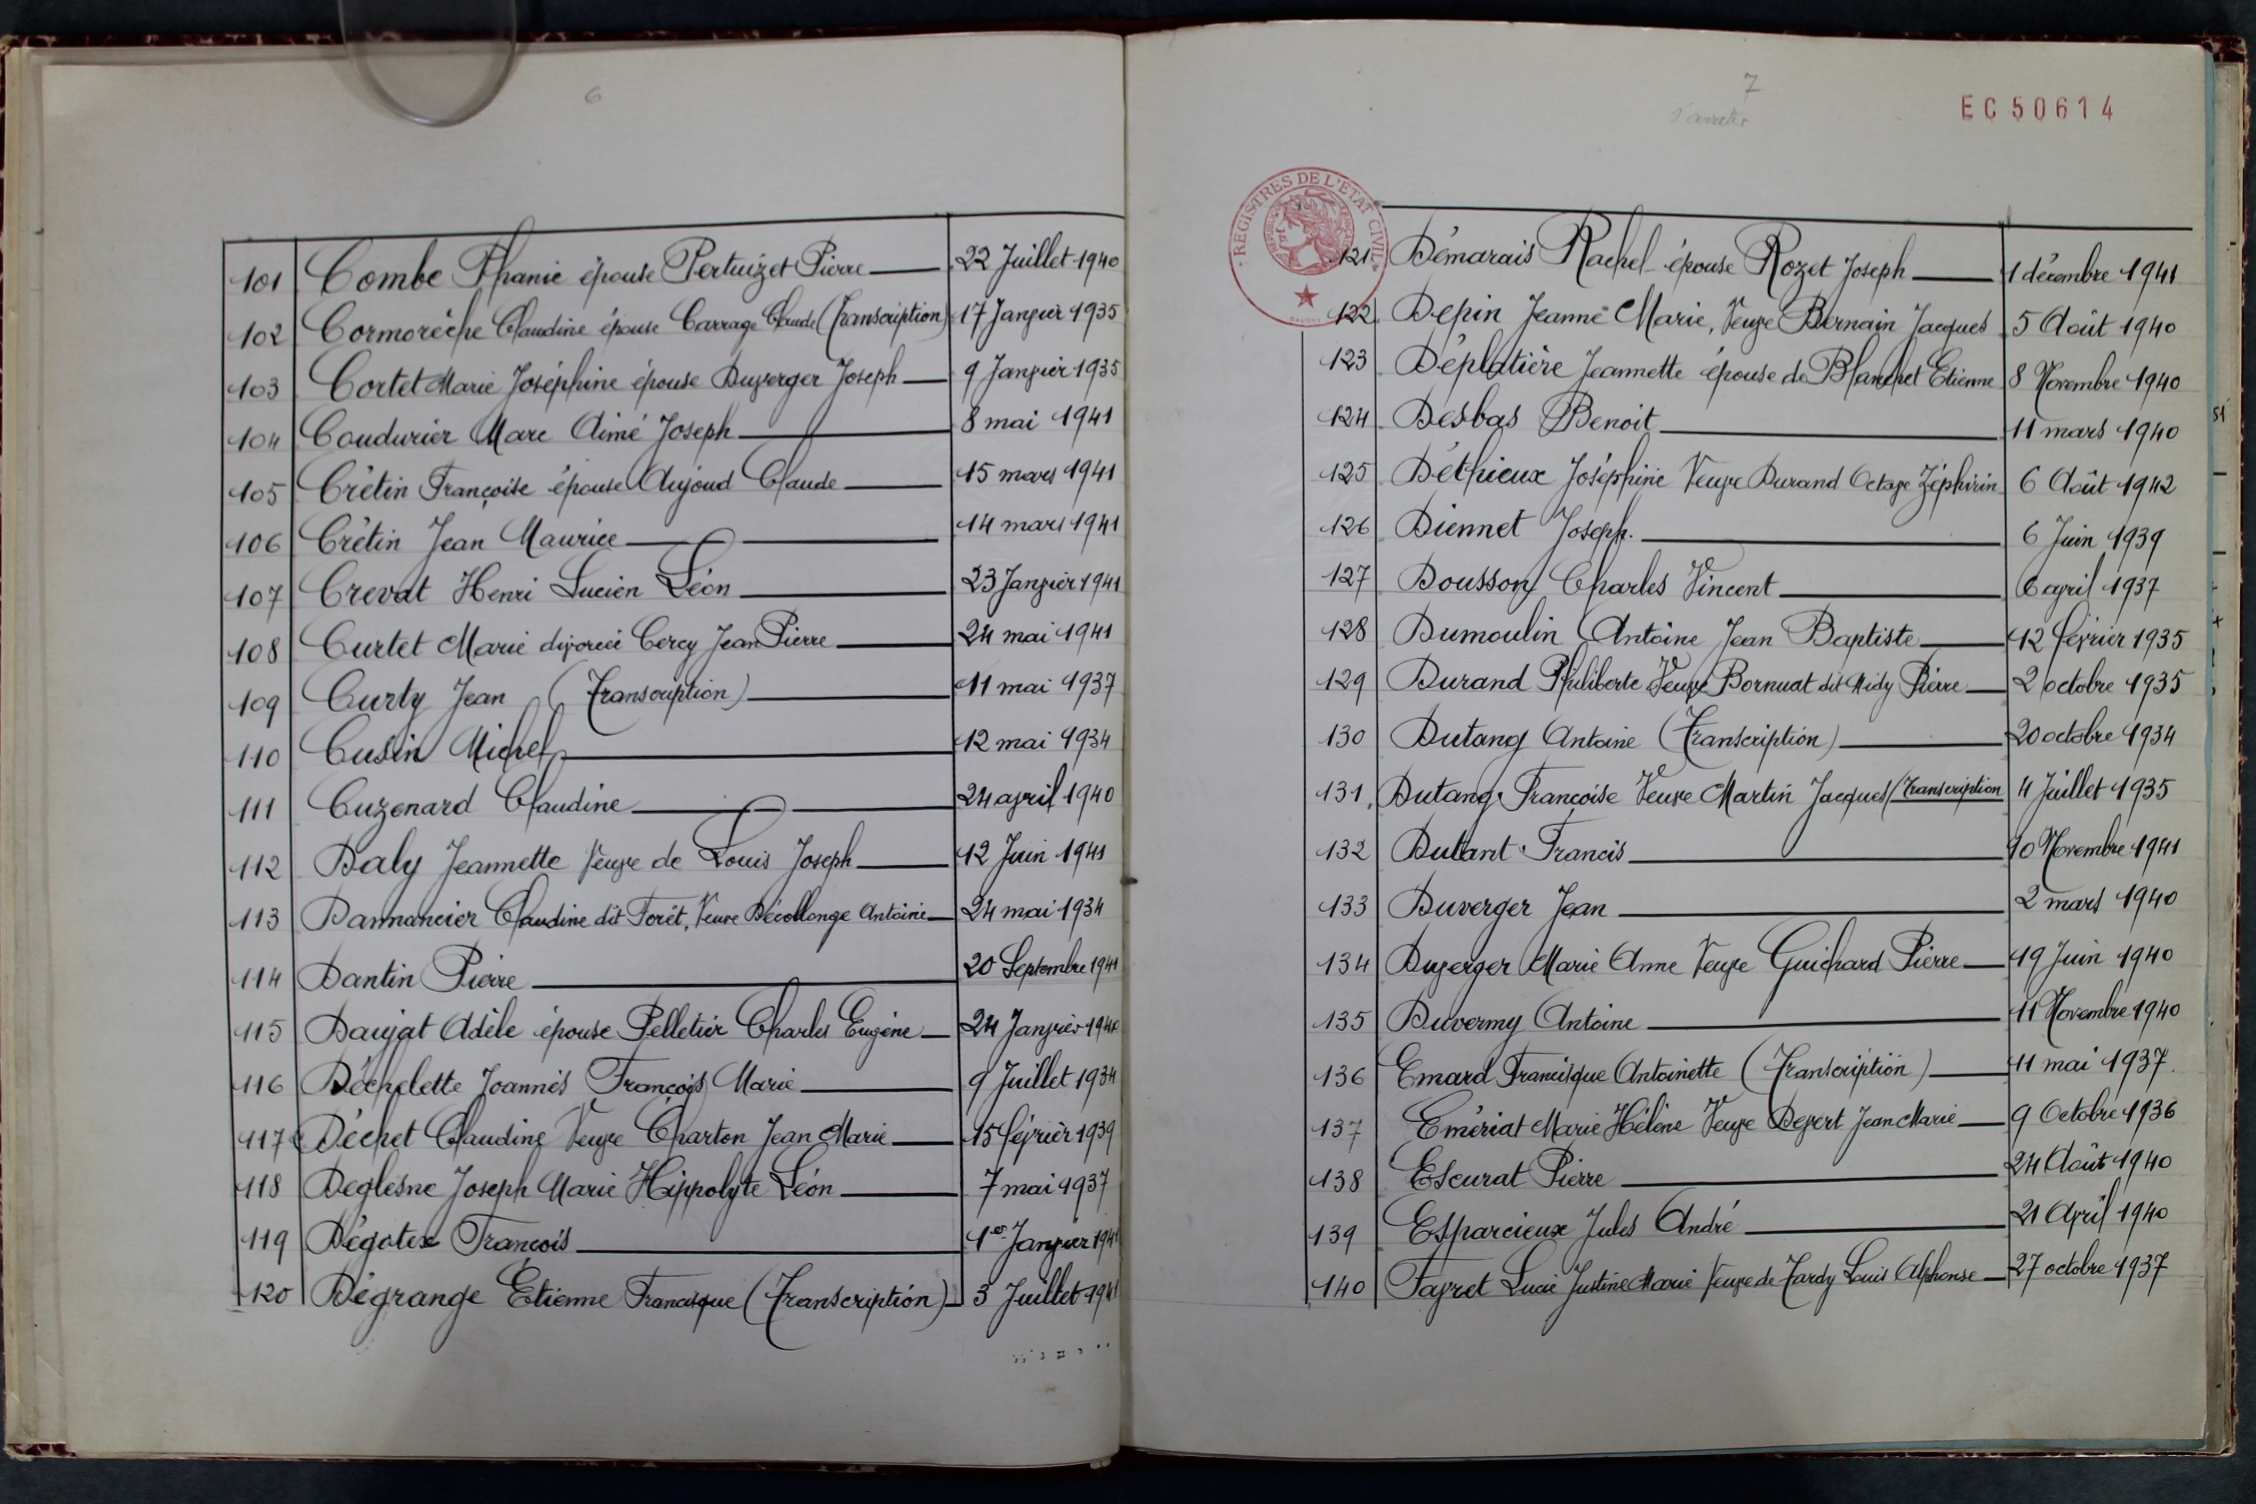 6
101 Combe Phanie épouse Pertuizet Pierre 22 Juillet 1940
102 Cormorèche Claudine épouse Carrage Claude (Transcription) 17 Janvier 1935
103 Cortet Marie Joséphine épouse Duverger Joseph 9 Janvier 1935
104 Coudurier Marc Aimé Joseph 8 mai 1941
105 Crétin Françoise épouse Aujoud Claude 15 mars 1941
106 Crétin Jean Maurice 14 mars 1941
107 Crevat Henri Lucien Léon 23 Janvier 1941
108 Curtet Marie divorcée Cercy Jean Pierre 24 mai 1941
109 Curty Jean (Transcription) 11 mai 1937
110 Cusin Michel 12 mai 1934
111 Cuzenard Claudine 24 avril 1940
112 Daly Jeannette Veuve de Louis Joseph 12 Juin 1941
113 Dannancier Claudine dit Forêt, Veuve Décollonge Antoine 24 mai 1934
114 Dantin Pierre 20 Septembre 1941
115 Daujat Adèle épouse Pelletier Charles Eugène 24 Janvier
116 Déchelette Joannès François Marie 9 Juillet 1934
117 Déchet Claudine Veuve Charton Jean Marie 15 février 1939
118 Deglesne Joseph Marie Hippolyte Léon 7 mai 1937
119 Dégotex François 1er Janvier 1941
120 Dégrange Étienne Francisque (Transcription) 3 Juillet 1941
7
EC50614
REGISTRES DE L'ETAT CIVIL
121 Démarais Rachel épouse Rozet Joseph 1 décembre 1941
122 Depin Jeanne Marie, Veuve Bernain Jacques 5 Août 1940
123 Déplatière Jeannette épouse de Blanchet Etienne 8 Novembre 1940
124 Desbas Benoit 11 mars 1940
125 Déthieux Joséphine Veuve Durand Octave Zéphirin 6 Août 1942
126 Diennet Joseph. 6 Juin 1939
127 Dousson Charles Vincent 6 avril 1937
128 Dumoulin Antoine Jean Baptiste 12 février 1935
129 Durand Philiberte Veuve Bornuat dit Midy Pierre 2 octobre 1935
130 Dutang Antoine (Transcription) 20 octobre 1934
131 Dutang Françoise Veuve Martin Jacques (Transcription 4 Juillet 1935
132 Dutant Francis 10 Novembre 1941
133 Duverger Jean 2 mars 1940
134 Duverger Marie Anne Veuve Guichard Pierre 19 Juin 1940
135 Duvermy Antoine 11 Novembre 1940
136 Emard Francisque Antoinette (Transcription) 11 mai 1937.
137 Emériat Marie Hélène Veuve Depert Jean Marie 9 Octobre 1936
138 Escurat Pierre 24 Août 1940
139 Esparcieux Jules André 21 Avril 1940
140 Fayret Lucie Justine Marie Veuve de Tardy Louis Alphonse 27 octobre 1937